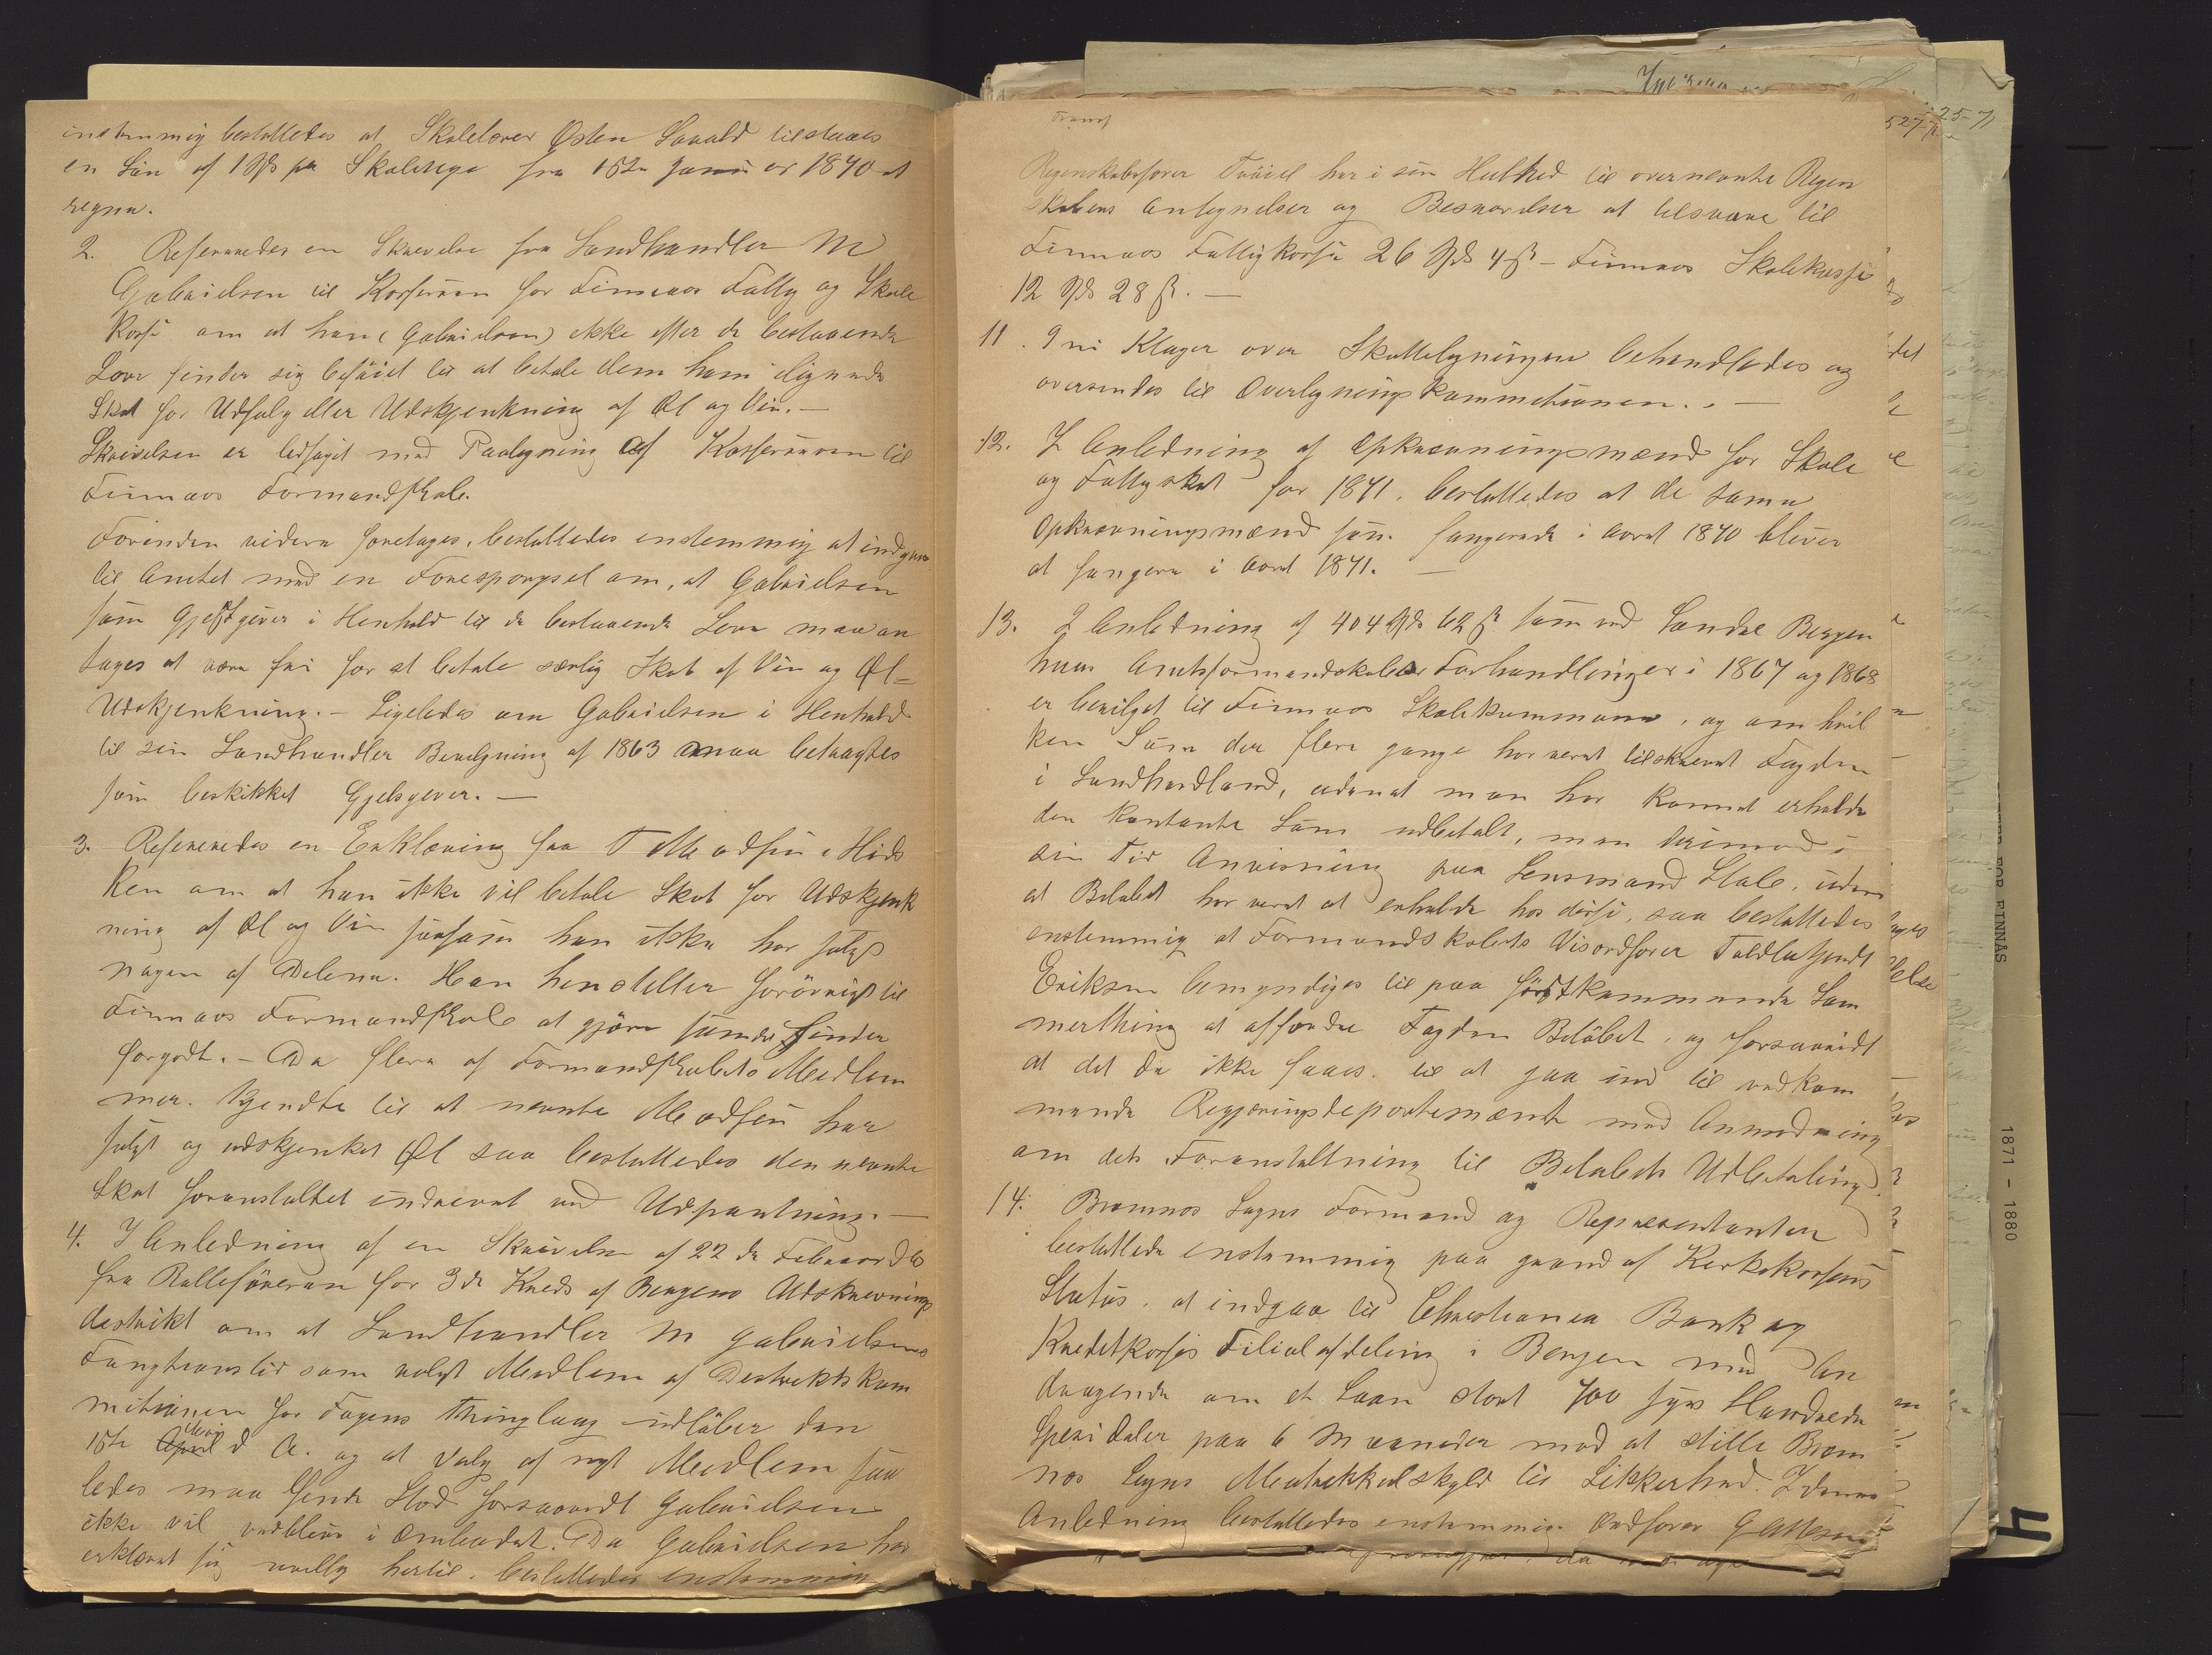 instemmig besluttedes at Skolelærer Østen Savald tilstaaes
en Løn af 1 Spd pr Skoleuge fra 15de Januar 1870 at
regne.
2. Refereredes en Skrivelse fra Landhandler M
Gabrielsen til Kassereren for Finnaas Fattig og Skole
Kasse om at han (Gabrielsen) ikke efter de bestaaende
Love finder sig beføiet til at betale dem ham ilignede
Skat for Udsalg eller Udskjenkning af Øl og Vin. —
Skrivelsen er ledsaget med Paategning af Kassereren til
Finnaas Formandskab.
Forinden videre foretages, besluttedes enstemmig at indgaa
til Amtet med en Forespørgsel om, at Gabrielsen
som Gjestgiver i Henhold til de bestaaende Love maa an
tages at være fri for at betale særlig Skat af Vin og Øl=
Udskjenkning. — Ligeledes om Gabrielsen i Henhold
til sin Landhandler Bevilgning af 1863 maa betragtes
som beskikket Gjestgiver. —
3. Refereredes en Erklæring fra T Madsen i Hids
ken om at han ikke vil betale Skat for Udskjenk
ning af Øl og Vin saasom han ikke har solgt
nogen af Delene. Han henstiller forøvrigt til
Finnaas Formandskab at gjøre som det finder
forgodt. — Da flere af Formandskabets Medlem
mer kjendte til at nevnte Madsen har
solgt og udskjenket Øl saa besluttedes den nevnte
Skat foranstaltet inddrevet ved Udpantning. —
4. I Anledning af en Skrivelse af 22de Februar d A
fra Rulleføreren for 3de Kreds af Bergens Udskrivnings
destrikt om at Landhandler M Gabrielsens
Fungtionstid som valgt Medlem af Destriktskom
mitionen for Fagens Thinglaug udløber den
15de April d A. og at Valg af nyt Medlem saa
ledes maa finde Sted forsaavidt Gabrielsen
ikke vil vedblive i Ombudet. Da Gabrielsen har
erklæret sig villig hertil, besluttedes enstemmig
Transp
Regenskabsfører Tveiel har i sin Helhed til overnevnte Regen
skabens Antegnelser og Besvarelser at tilsvare til
Finnaas Fattigkasse 26 Spd 4 ß — Finnaas Skolekasse
12 Spd 28 ß. —
11. Ini Klager over Skatteligningen behandledes og
oversendes til Overligningskommitionen. —
12. I Anledning af Opkrævningsmænd for Skole
og Fattigskat for 1871, besluttedes at de samme
Opkrævningsmænd som fungerede i Aaret 1870 bliver
at fungere i Aaret 1871. —
13. I Anledning af 404 Spd 62 ß som ved Søndre Bergen
huus Amtsformandskabs Forhandlinger i 1867 og 1868
er bevilget til Finnaas Skolekommune, og om hvil
ken Sum der flere gange har veret tilskrevet Fogden
i Sundhordland, udenat man har kunnet erholde
den kontante Sum udbetalt, men derimod i
sin Tid Anvisning paa Lensmand Stab, uden
at Beløbet har veret at erholde hos disse, saa besluttedes
enstemmig at Formandskabets Viseordfører Toldbetjendt
Eriksen bemyndiges til paa førstkommende Som
merthing at affordre Fogden Beløbet, og forsaavidt
at det da ikke faaes, til at gaa ind til vedkom
mende Regjeringsdepartement med Anmodning
om dets Foranstaltning til Beløbets Udbetaling.
14. Bremnes Sogns Formænd og Repræsentanter
besluttede enstemmig paa grund af Kirkekassens
Status, at indgaa til Christiania Bank og
Kreditkasses Filialafdeling i Bergen med An
dragende om et Laan stort 700 syv Hundrede
Spesidaler paa 6 Maaneder mod at stille Brem
nes Sogns Matrikkelskyld til Sikkerhed. I denne
Anledning besluttedes enstemmig Ordfører G Ottesen
1871 - 1880
FOR FINNÅS
4
527-71
25-71